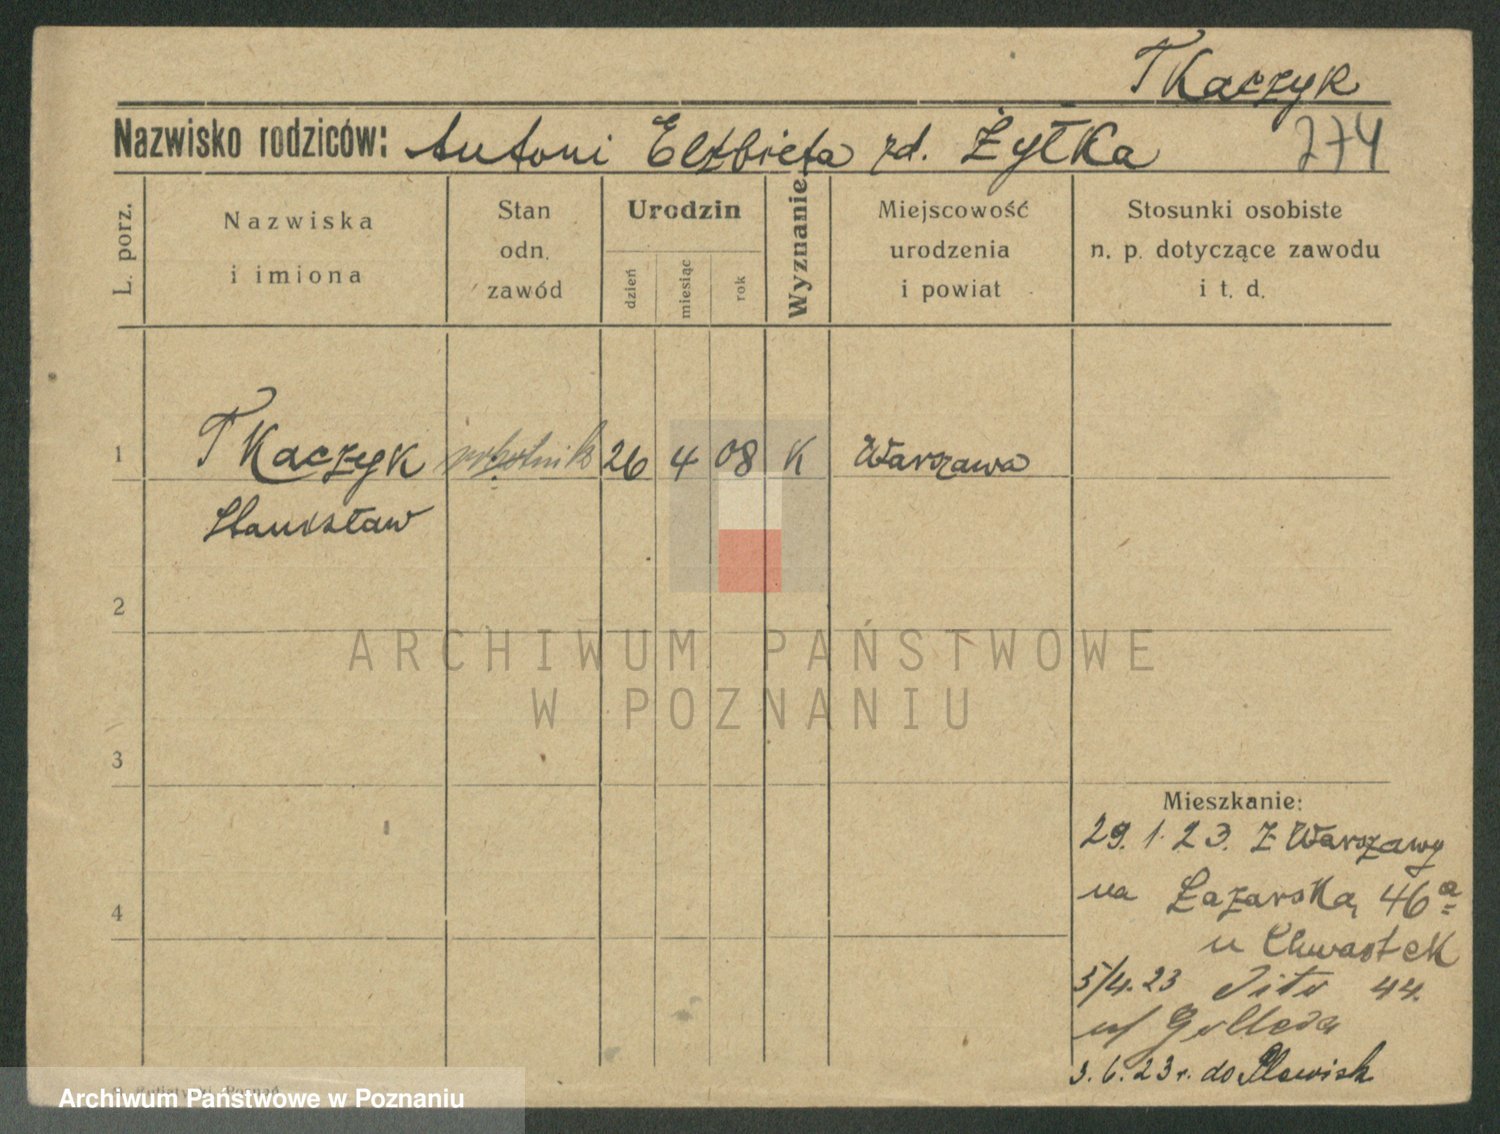 Tkaczyk
Nazwisko rodziców: Antoni Elżbieta zd. Żyłka 274
L. porz.
Nazwiska
i imiona
Stan
odn.
zawód
Urodzin
dzień
miesiąc
rok
Wyznanie
Miejscowość
urodzenia
i powiat
Stosunki osobiste
n. p. dotyczące zawodu
i t. d.
1 Tkaczyk robotnik 26 4 08 K Warszawa
Stanisław
2
3
4
ARCHIWUM PAŃSTWOWE
W POZNANIU
Mieszkanie:
29. 1. 23. Z Warszawy
na Łazarska, 46a
u Chwastek
5/4. 23 Dito 44.
u/
3. 6. 23 r. do Plewisk
Poznań
Archiwum Państwowe w Poznaniu